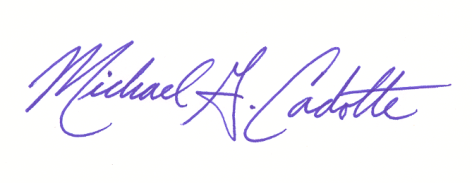 Michael G. Cadotte